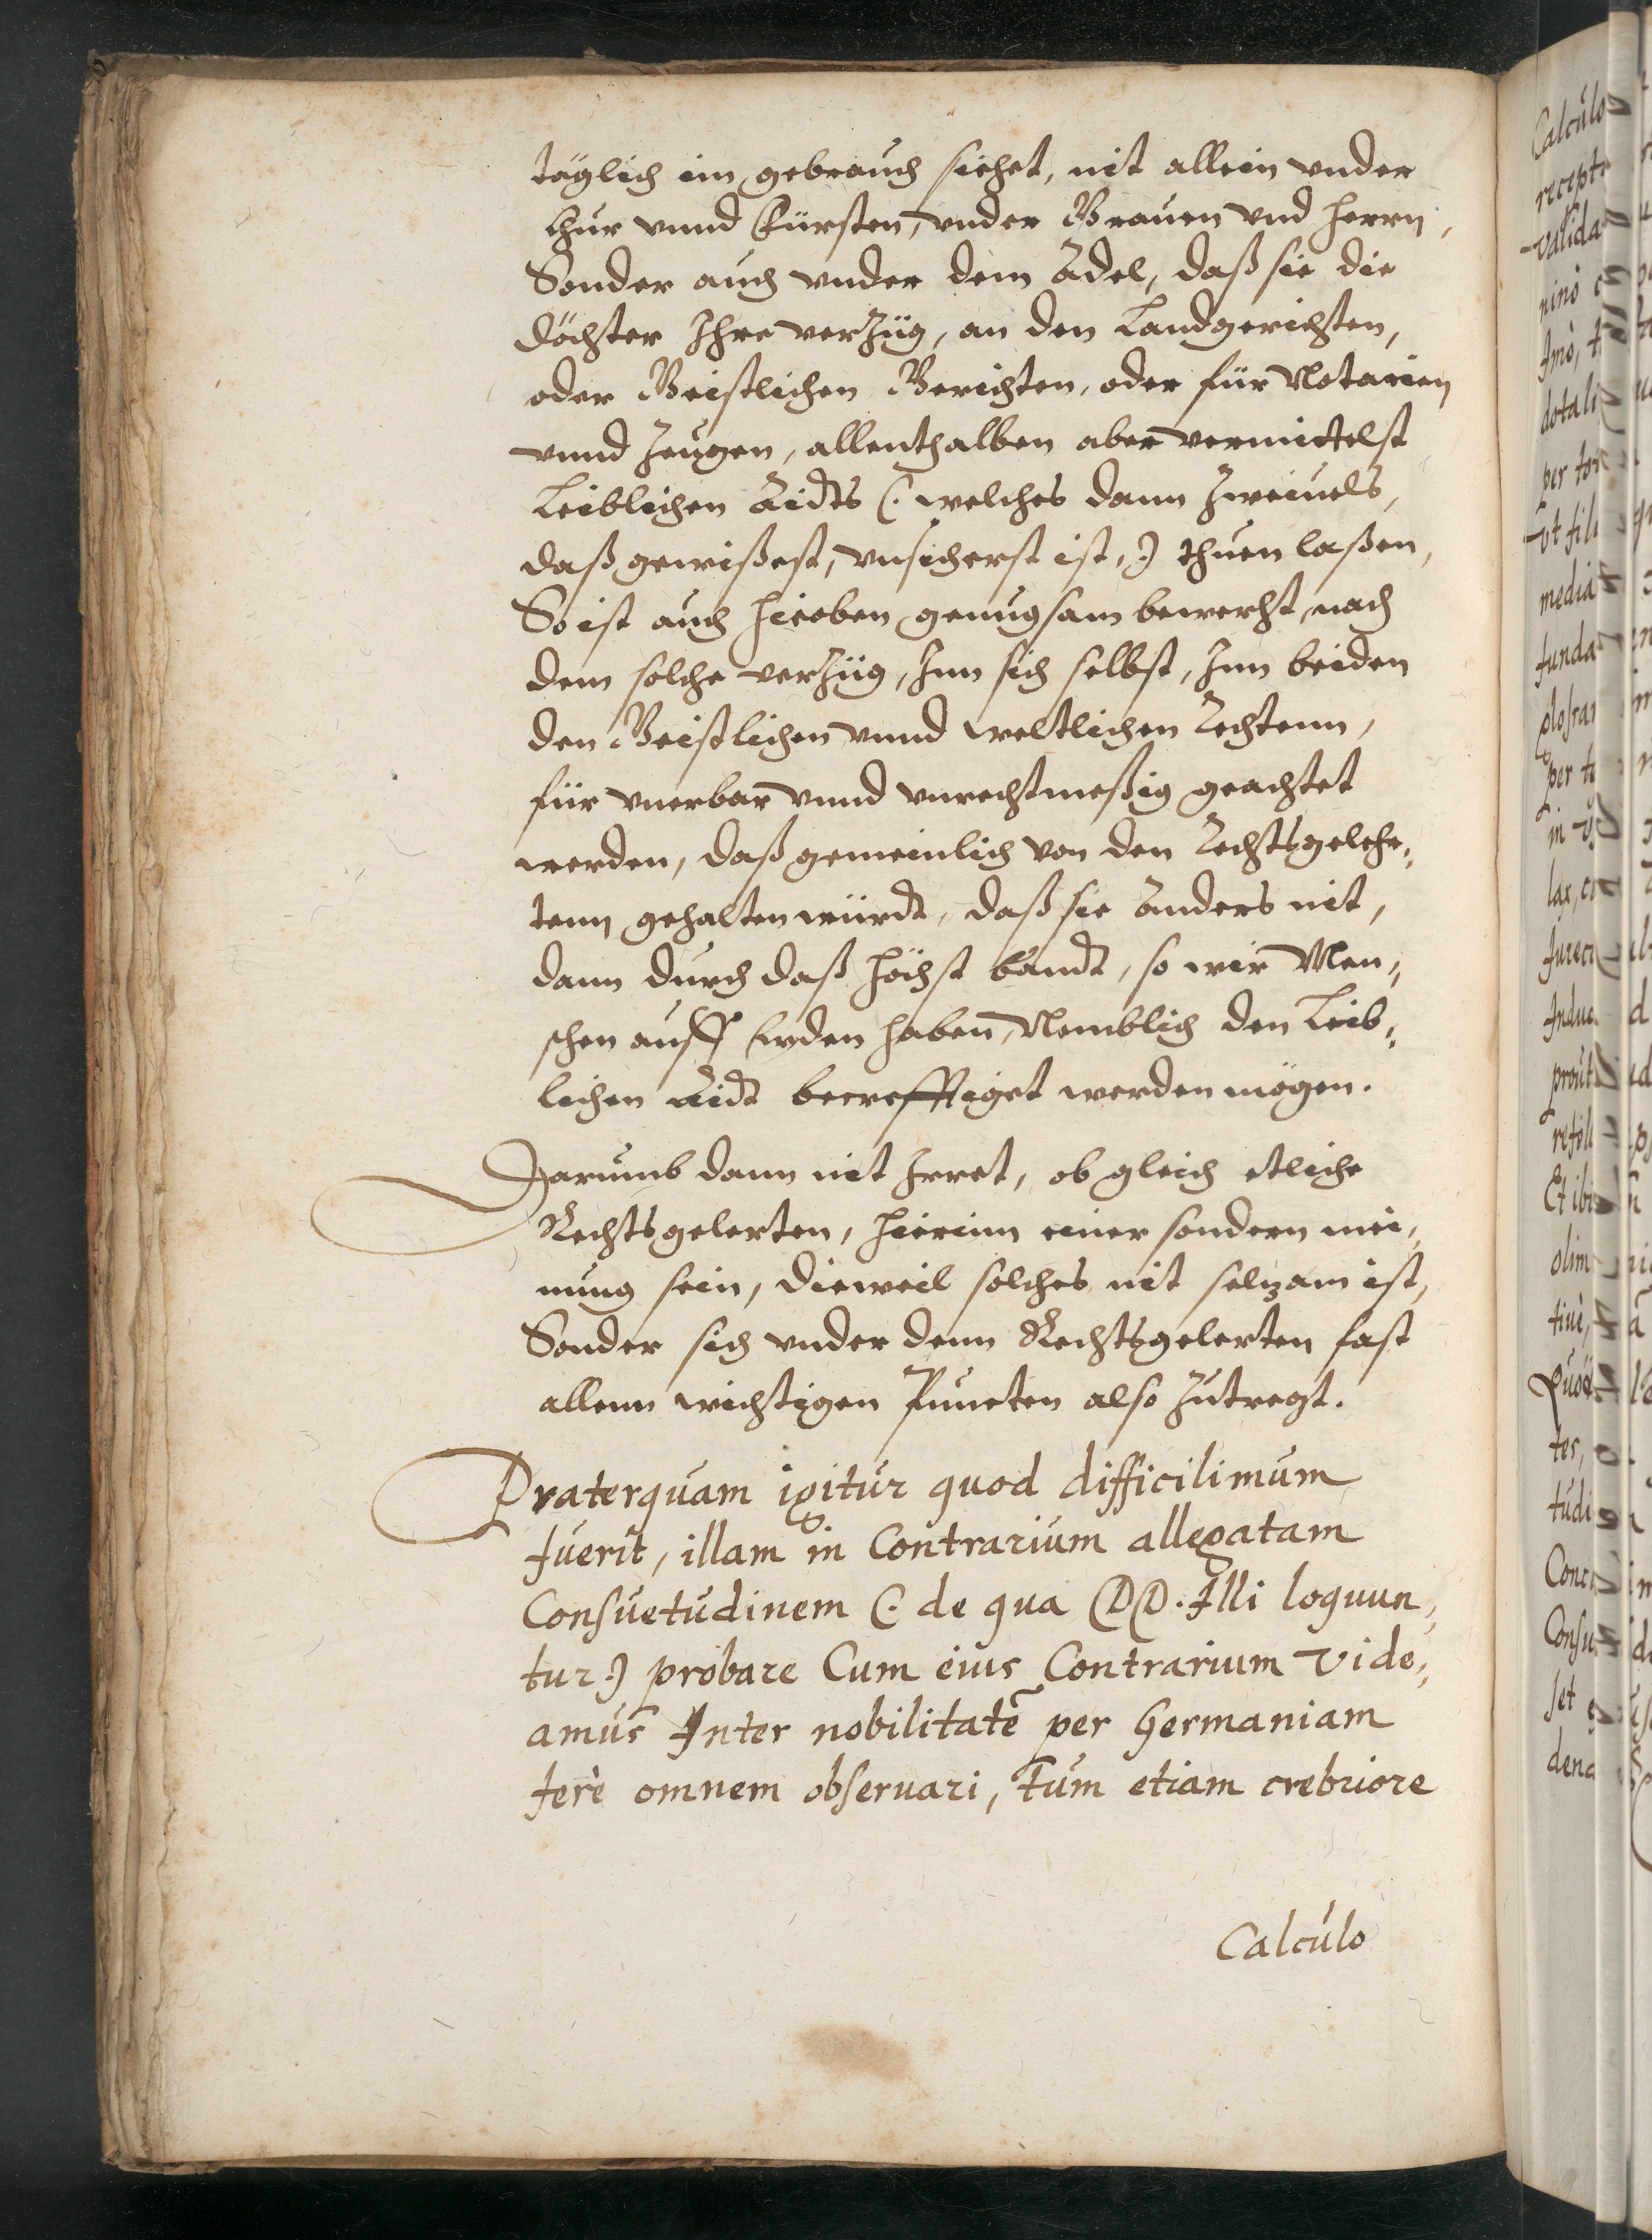 täglich im gebrauch siehet, nit allein vnder
Chur vnnd Fürsten, vnder Grauen vnd Herrn,
Sonder auch vnder dem Adel, daß sie die
döchter Ihre verzüg, an den Landgerichten,
oder Geistlichen Gerichten, oder für Notarien
vnnd Zeugen, allenthalben aber vermittelst
Leiblichen Aidts (: welches dann Zweiuels,
daß gewißest, vnsicherst ist,:) thuen laßen,
So ist auch hieoben genugsam bewerht, nach
dem solche verzüg, Inn sich selbst, Inn beiden
den Geistlichen vnnd weltlichen Rechtenn,
für vnerbar vnnd vnrechtmeßig geachtet
werden, daß gemeinlich von den Rechtsgelehr„
tenn gehalten würdt, daß sie Anders nit,
dann durch daß höchst bandt, so wir Men„
schen auff Erden haben, Nemblich den Leib„
lichen Aidt becrefftiget werden mögen.
Darumb dann nit Irret, ob gleich etliche
Rechtsgelerten, hierinn einer sondern mei„
nung sein, dieweil solches nit selzam ist,
Sonder sich vnder denn Rechtsgelerten fast
allenn wichtigen Puncten also Zutregt.
Praterquam igitur quod difficilimum
fuerit, illam in Contrarium allegatam
Consuetudinem (: de qua DD. Illi loquun„
tur:) probare Cum eius Contrarium Vide„
amus Inter nobilitatẽ per Germaniam
ferè omnem obseruari, Tum etiam crebriore
Calculo
Calculo
recept
valida
nino
Imò, t
dotali
per tor
vt fili
media
funda
glossam
per te
in
lax, c
Jurec
Indue
prout
refol
Et ibi
olim
tiuè,
Quod
tes,
tudi
Conc
Consu
set
dena